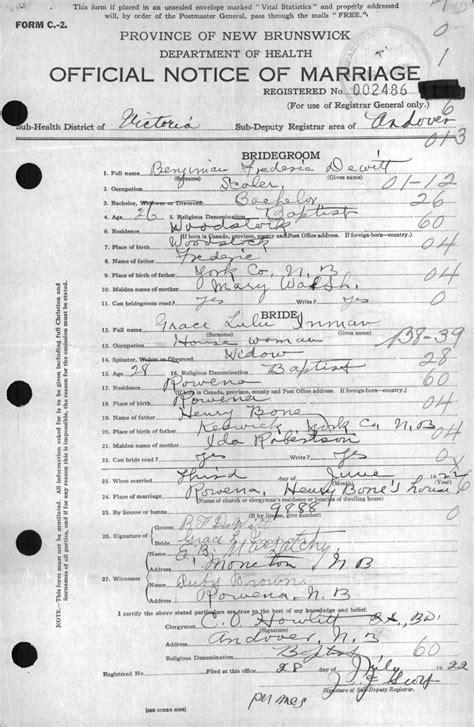 This form if placed in an unsealed envelope marked "Vital Statistics" and properly addressed
will, by order of the Postmaster General, pass through the mails "FREE."
FORM C.-2.
PROVINCE OF NEW BRUNSWICK
DEPARTMENT OF HEALTH
OFFICIAL NOTICE OF MARRIAGE
REGISTERED No. 002486
(For use of Registrar General only.)
Sub-Health District of Victoria Sub-Deputy Registrar area of Andover
013
BRIDEGROOM
1. Full name Benjiman Frederic Dewitt
(Surname) (Given names)
2. Occupation Scaler 01-12
3. Bachelor, Widower or Divorced Bachelor 26
4. Age 26 5. Religious Denomination Baptist
6. Residence Woodstock 60
(If born in Canada, province, county and Post Office address. If foreign-born—country.)
7. Place of birth Woodstock 04
8. Name of father Frederic
9. Place of birth of father York Co. N.B 04
10. Maiden name of mother Mary Walsh
11. Can bridegroom read? Yes Write? Yes 0
BRIDE
12. Full name Grace Lulu Inman
(Surname) (Given names)
13. Occupation House woman 138-39
14. Spinster, Widow or Divorced Widow 28
15. Age 28 16. Religious Denomination Baptist
17. Residence Rowena 60
(If born in Canada, province, county and Post Office address. If foreign-born—country.)
18. Place of birth Rowena 04
19. Name of father Henry Bone
20. Place of birth of father Keswick, York Co, N.B 04
21. Maiden name of mother Ida Robertson
22. Can bride read? Yes Write? Yes
23. When married Third day of June 1922
(Month)
24. Place of marriage Rowena, Henry Bone's house 6
(Name of church, clergyman's residence or location of dwelling house)
25. By license or banns 9888
(If by license, give number)
26. Signature of Groom
Bride Grace L
Moncton N B
27. Witnesses Ruby Brown
Rowena, N.B
I certify the above stated particulars are true to the best of my knowledge and belief.
Clergyman C. O. Howlett
(Signature)
Address Andover, N.B
Religious Denomination Baptist 60
Registered No. Filed at this office 28 day of July 1922
Signature of Sub-Deputy Registrar.
[SEE OTHER SIDE]
All information asked for is to be given including full Christian and
Surnames of all parties, and if this is impossible, the reason for the omission must be stated.
This form must not be mutilated.